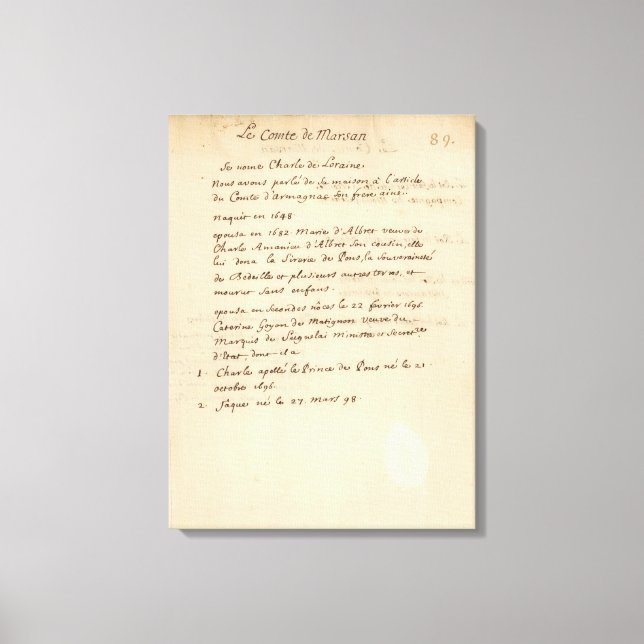 Le Comte de Marsan
89.
Se nome Charle de Loraine.
Nous avons parlé de sa maison à l'article
du Comte d'armagnac son frere ainé.
naquit en 1648
epousa en 1682. Marie d'Albret veuve de
Charle Amanieu d'Albret son cousin, elle
lui dona la Sirerie de Pons, la souveraineté
de Bedeille et plusieurs autres terres, et
mourut sans enfans.
epousa en secondes nôces le 22 fevrier 1696.
Caterine Goyon de Matignon veuve du
Marquis de Seignelai Ministre et Secretre
d'Etat, dont il a
1. Charle apellé le Prince de Pons né le 21.
octobre 1696.
2. Jaque né le 27. mars 98.